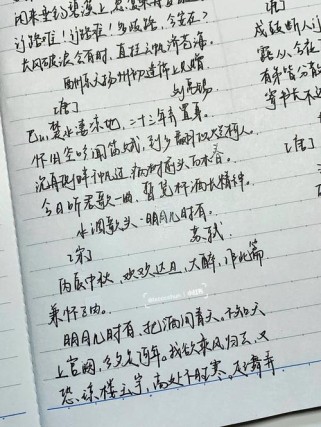 闲来垂钓碧溪上,忽
行路难!行路难!多歧路,今安在?
长风破浪会有时,直挂云帆济沧海。
酬乐天扬州初逢席上见赠
[唐] 刘禹锡
巴山楚水凄凉地,二十三年弃置身。
怀旧空吟闻笛赋,到乡翻似烂柯人。
沉舟侧畔千帆过,病树前头万木春。
今日听君歌一曲,暂凭杯酒长精神。
水调歌头·明月几时有
[宋] 苏轼
丙辰中秋,欢饮达旦,大醉,作此篇
兼怀子由。
明月几时有,把酒问青天。不知天
上宫阙,今夕是何年。我欲乘风归去,又
恐琼楼玉宇,高处不胜寒。起舞弄
[唐]
戍鼓断人行
露从今夜
有弟皆分散
寄书长不达
[唐]